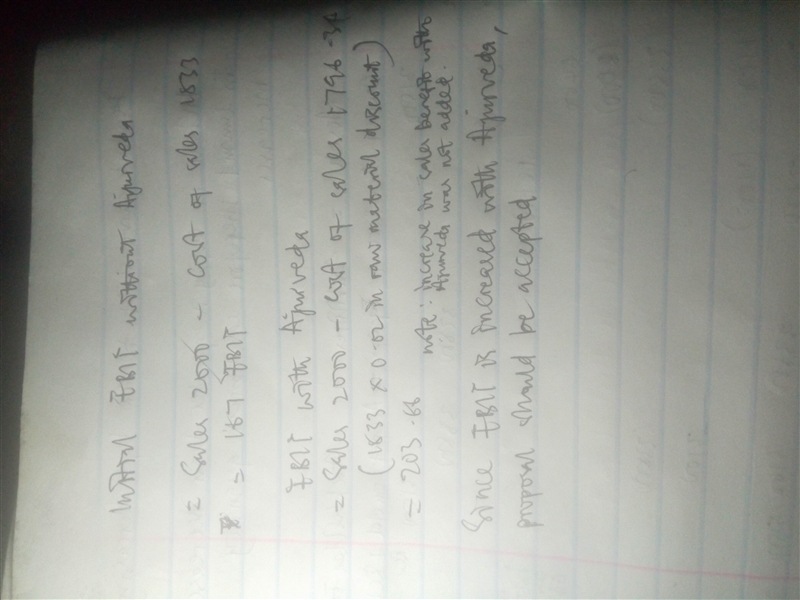 Initial EBIT without Ajurveda
= Sales 2000 - cost of sales 1833
= 167 EBIT
EBIT with Ajurveda
= Sales 2000 - cost of sales 1796.34
(1833 x 0.02 in raw material discount)
= 203.66
note: increase in sales benefit with
Ajurveda was not added.
Since EBIT is increased with Ajurveda,
proposal should be accepted